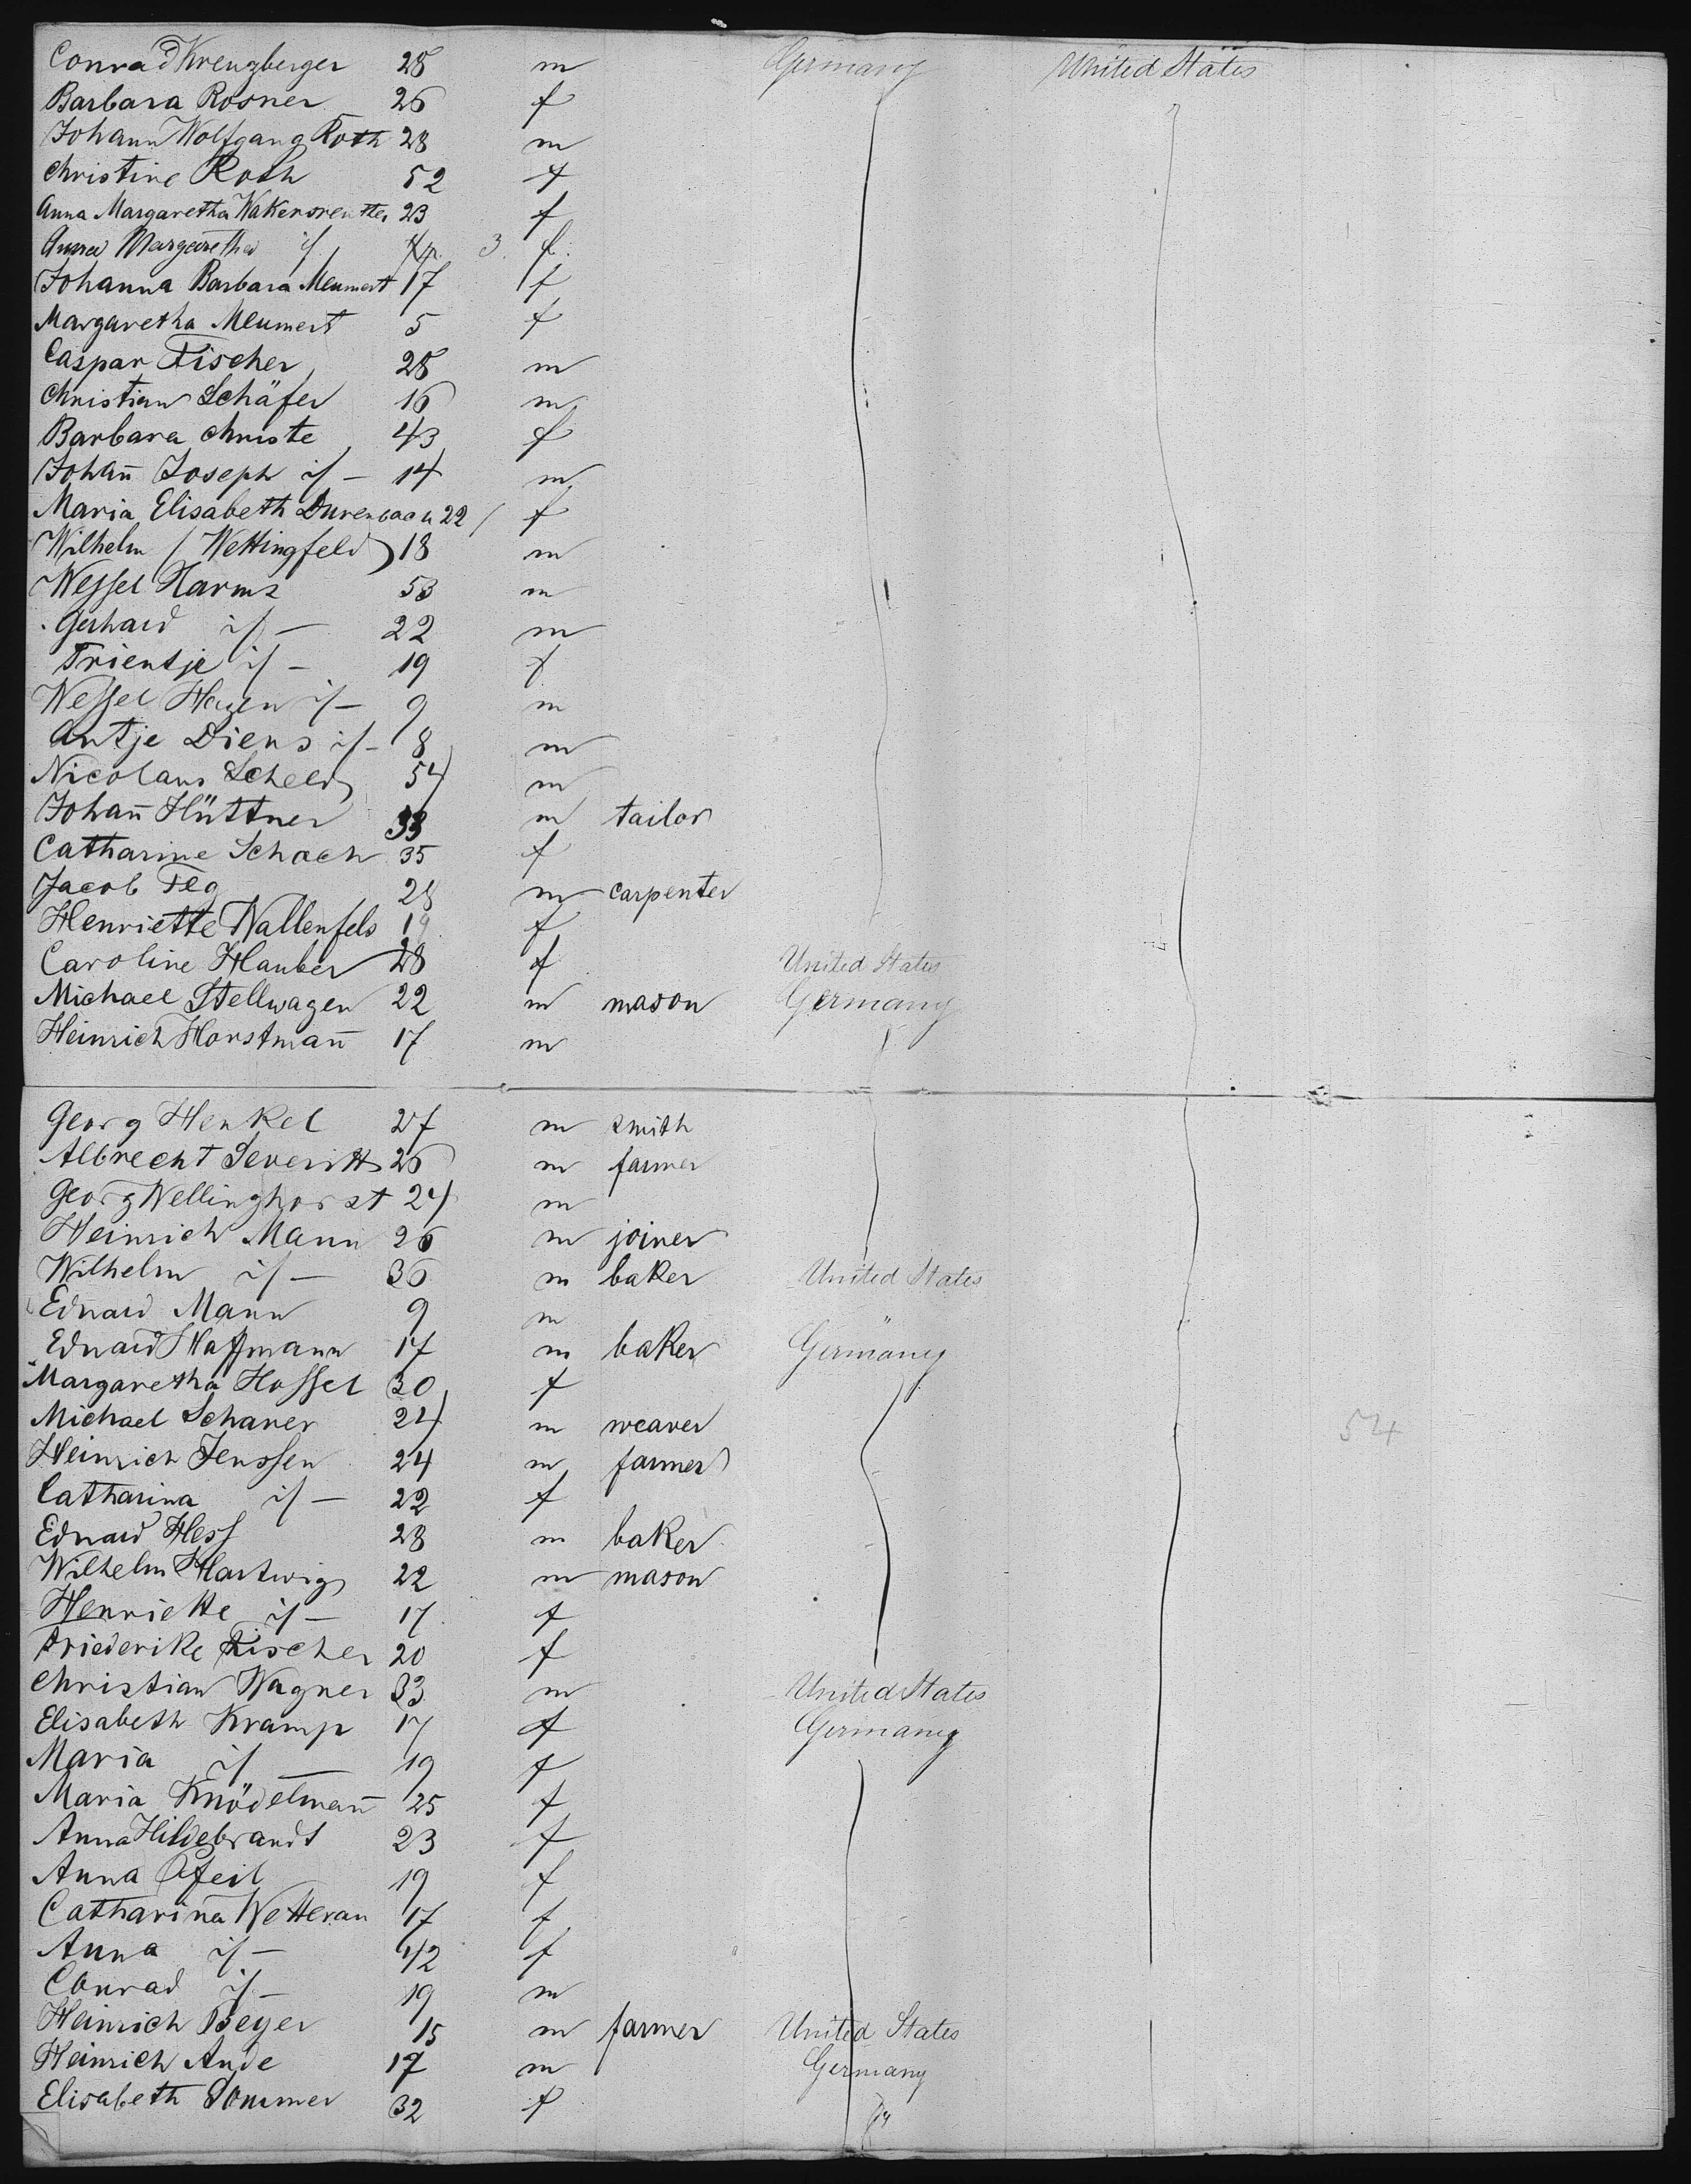 Conrad Kreuzberger 28 m Germany United States
Barbara Rosner 26 f
Johann Wolfgang Roth 28 m
Christine Roth 52 f
Anna Margaretha 23 f
Anna Margaretha if 3 f
Johanna Barbara Meumert 17 f
Margaretha Meumert 5 f
Caspar Fischer 28 m
Christian Schäfer 16 m
Barbara Christe 43 f
Johan̄ Joseph if — 14 m
Maria Elisabeth Durenbach 22 f
Wilhelm Wettingfeld 18 m
Wessel Harms 53 m
Gerhard if — 22 m
Trientje if — 19 f
Wessel Hagen if — 9 m
Antje Diens if — 8 m
Nicolaus Scheld 54 m
Johan̄ Hüttner 33 m tailor
Catharine Schach 35 f
Jacob Feg 28 m carpenter
Henriette Wallenfels 19 f
Caroline Hauber 28 f United States
Michael Stellwagen 22 m mason Germany
Heinrich Horstman̄ 17 m
Georg Henkel 27 m smith
Albrecht Severitt 26 m farmer
Georg Wellinghorst 24 m
Heinrich Mann 26 m joiner
Wilhelm if — 36 m baker United States
Eduard Mann 9 m
Eduard Haffmann 17 m baker Germany
Margaretha Hossel 30 f
Michael Schauer 24 m weaver 54
Heinrich Jenssen 24 m farmer
Catharina if — 22 f
Eduard Hess 28 m baker
Wilhelm Hartwig 22 m mason
Henriette if — 17 f
Friederike Fischer 20 f
Christian Wagner 33 m United States
Elisabeth Kramp 17 f Germany
Maria if — 19 f
Maria Knödelman̄ 25 f
Anna Hildebrandt 23 f
Anna Pfeil 19 f
Catharina Wetterau 17 f
Anna if — f
Conrad if — 19 m
Heinrich Beyer 15 m farmer United States
Heinrich Aude 17 m Germany
Elisabeth Sommer 32 f